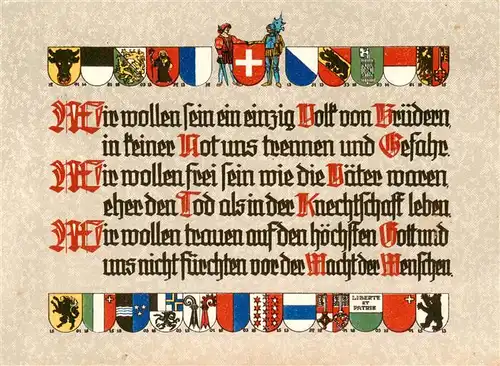 Wir wollen sein ein einzig Volk von Brüdern,
in keiner Not uns trennen und Gefahr.
Wir wollen frei sein wie die Väter waren,
eher den Tod als in der Knechtschaft leben.
Wir wollen trauen auf den höchsten Gott und
uns nicht fürchten vor der Macht der Menschen.
LIBERTÉ
ET
PATRIE